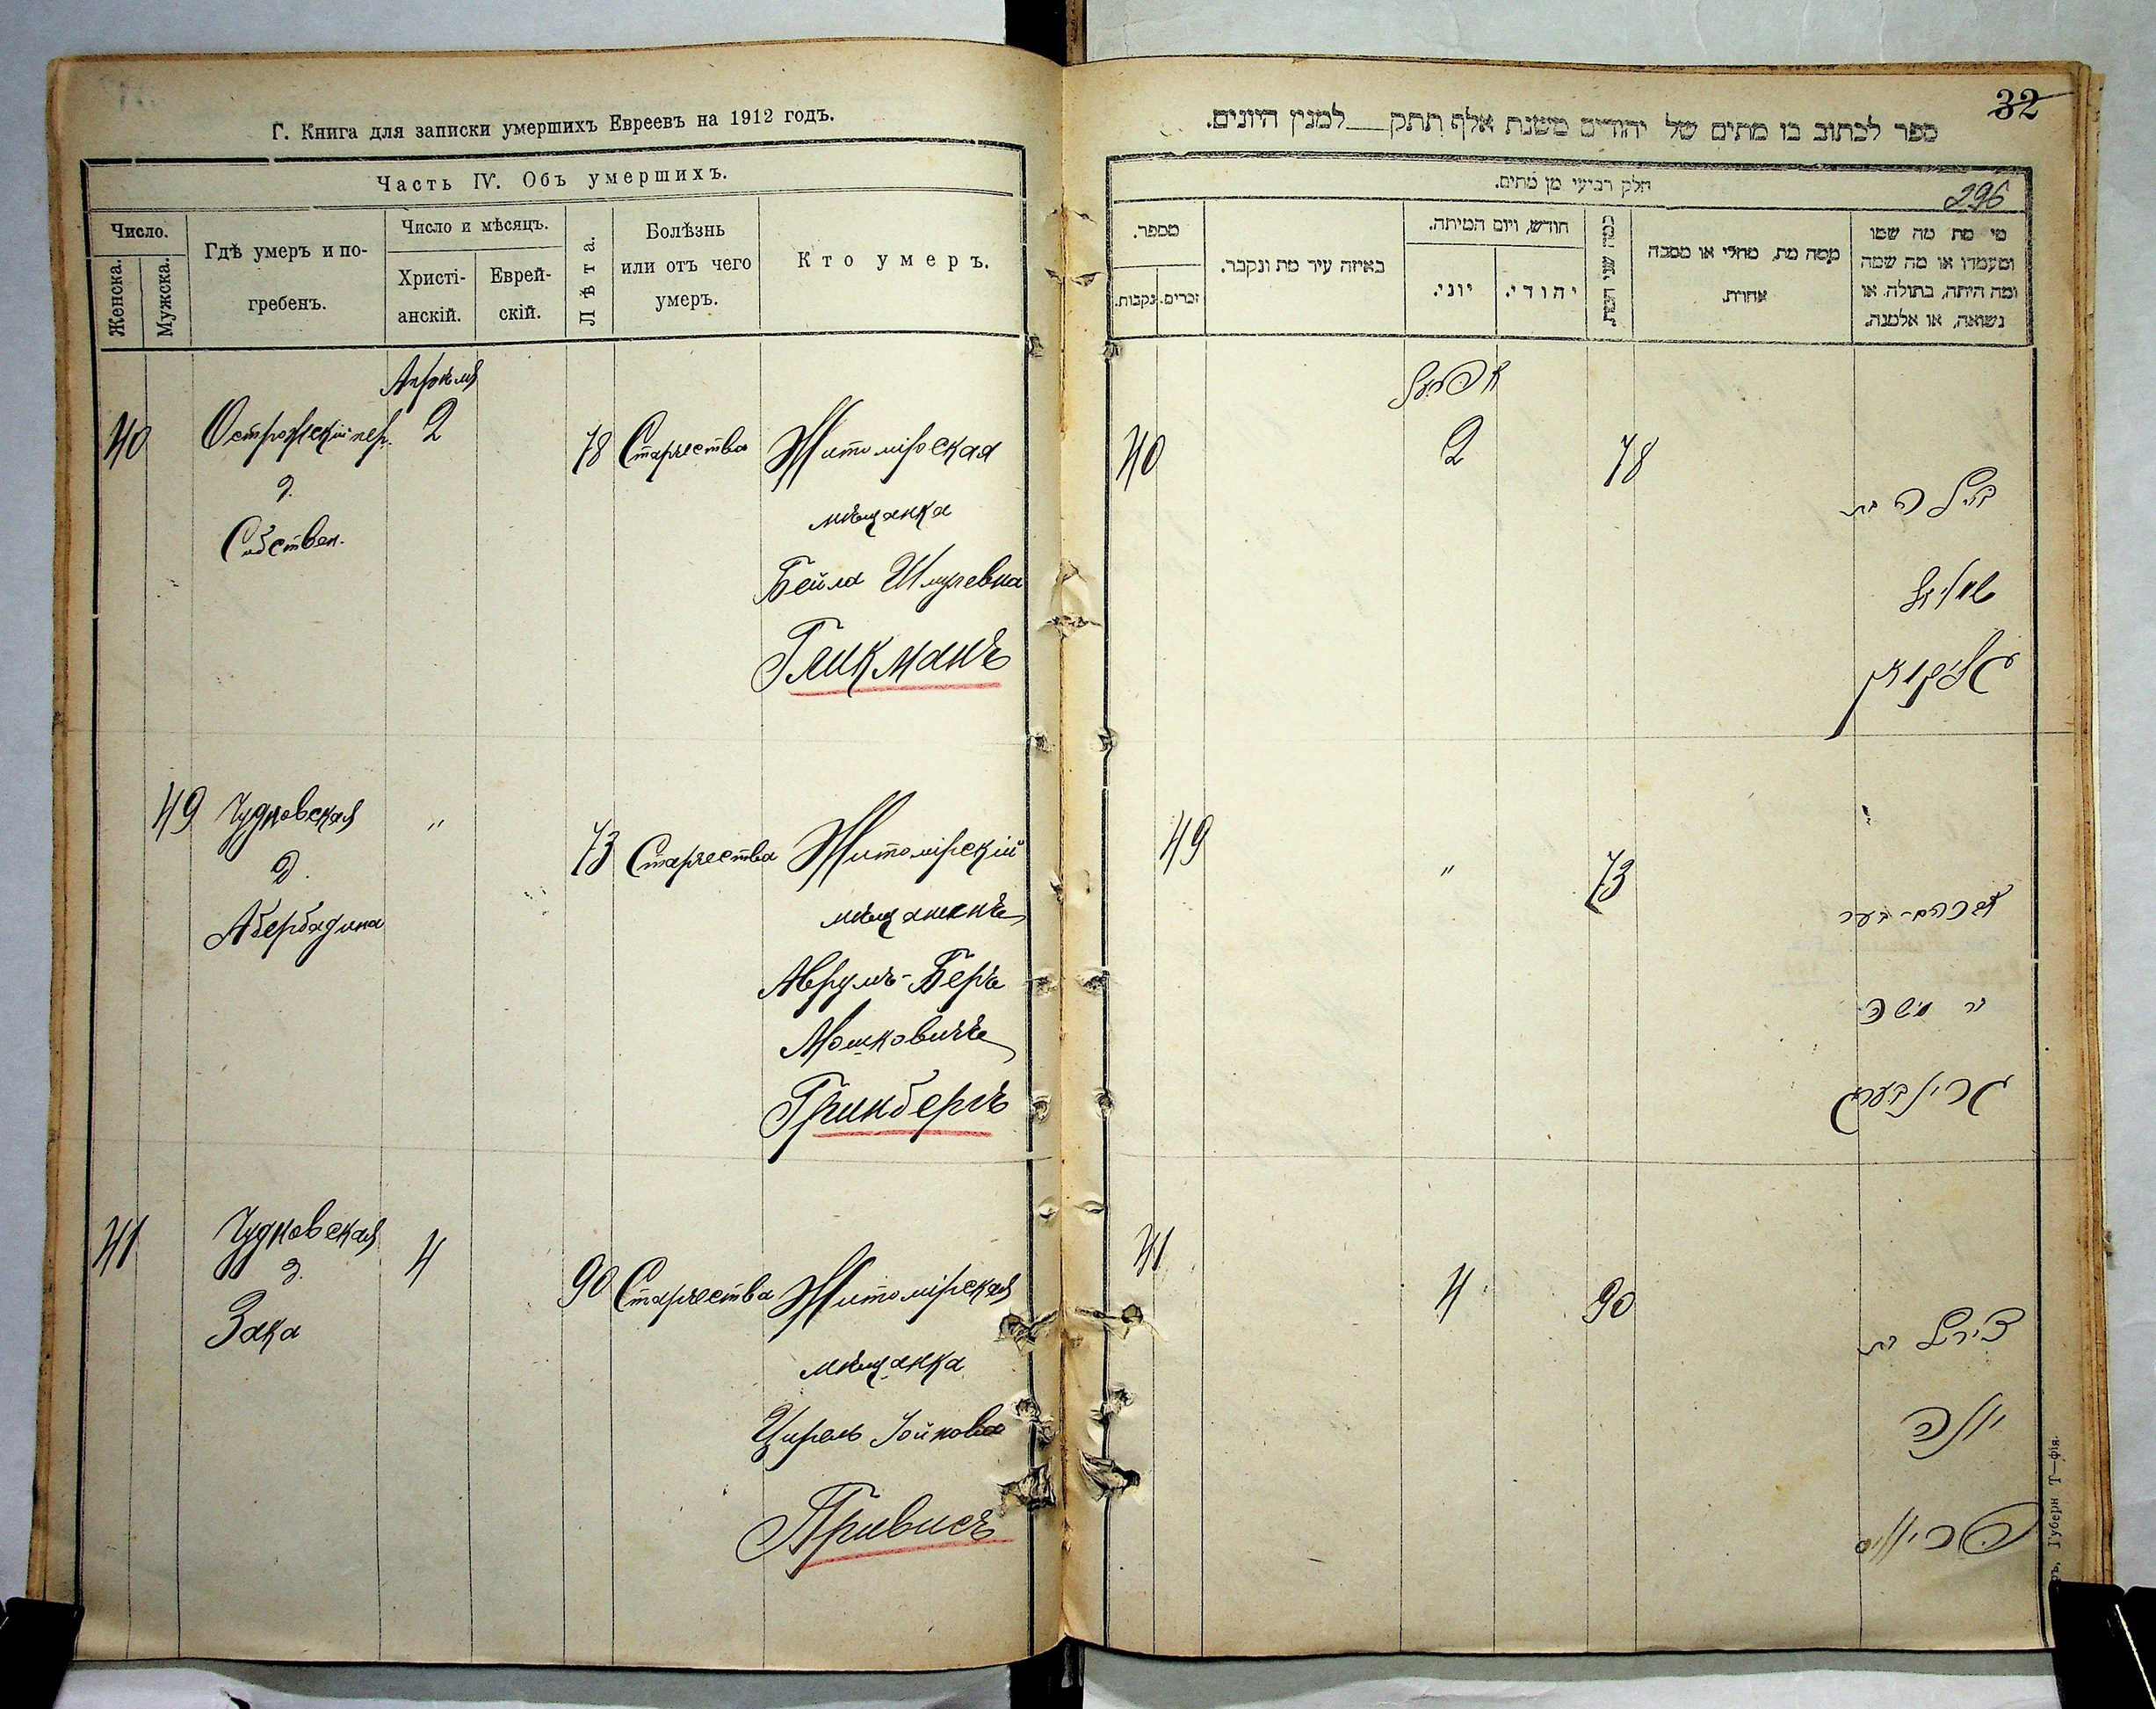 Г. Книга для записки умершихъ Евреевъ на 1912 годъ.
Часть IV. Объ умершихъ.
Число.
Женска.
Мужска.
Гдѣ умеръ и по-
гребенъ.
Число и мѣсяцъ.
Христі-
анскій.
Еврей-
скій.
Лѣта.
Болѣзнь
или отъ чего
умеръ.
Кто умеръ.
Апрѣля
40 Острожскій пер. 2 78 Старчества Житомірская
д. мѣщанка
Собствен. Бейла Шмулевна
Гликманъ
49 Чудновская " 73 Старчества Житомірскій
д. мѣщанинъ
Аврумъ-Беръ
Мошковичъ
Гринбергъ
41 Чудновская 4 90 Старчества Житомірская
д. мѣщанка
Зака Цирель
Привисъ
32
ספר לכתוב בו מתים של יהודים משנת אלף תתק__למנין היונים.
חלק רביעי מן מתים.
296
מספר.
נקבות.
זכרים.
באיזה עיר מת ונקבר.
חודש, ויום המיתה.
יוני.
יהודי.
כמה שני המת
ממה מת, מחלי או מסבה
אחרת.
מי מת מה שמו
ומעמדו או מה שמה
ומה היתה, בתולה או
נשואה, או אלמנה.
אפריל
40 2 78
ביילה בת
שמואל
גליקמאן
49 " 73
אברהם-בער
בר משה
גרינבערג
41 4 90
צירל בת
יונה
פריוויס
Губерн Т—фія.